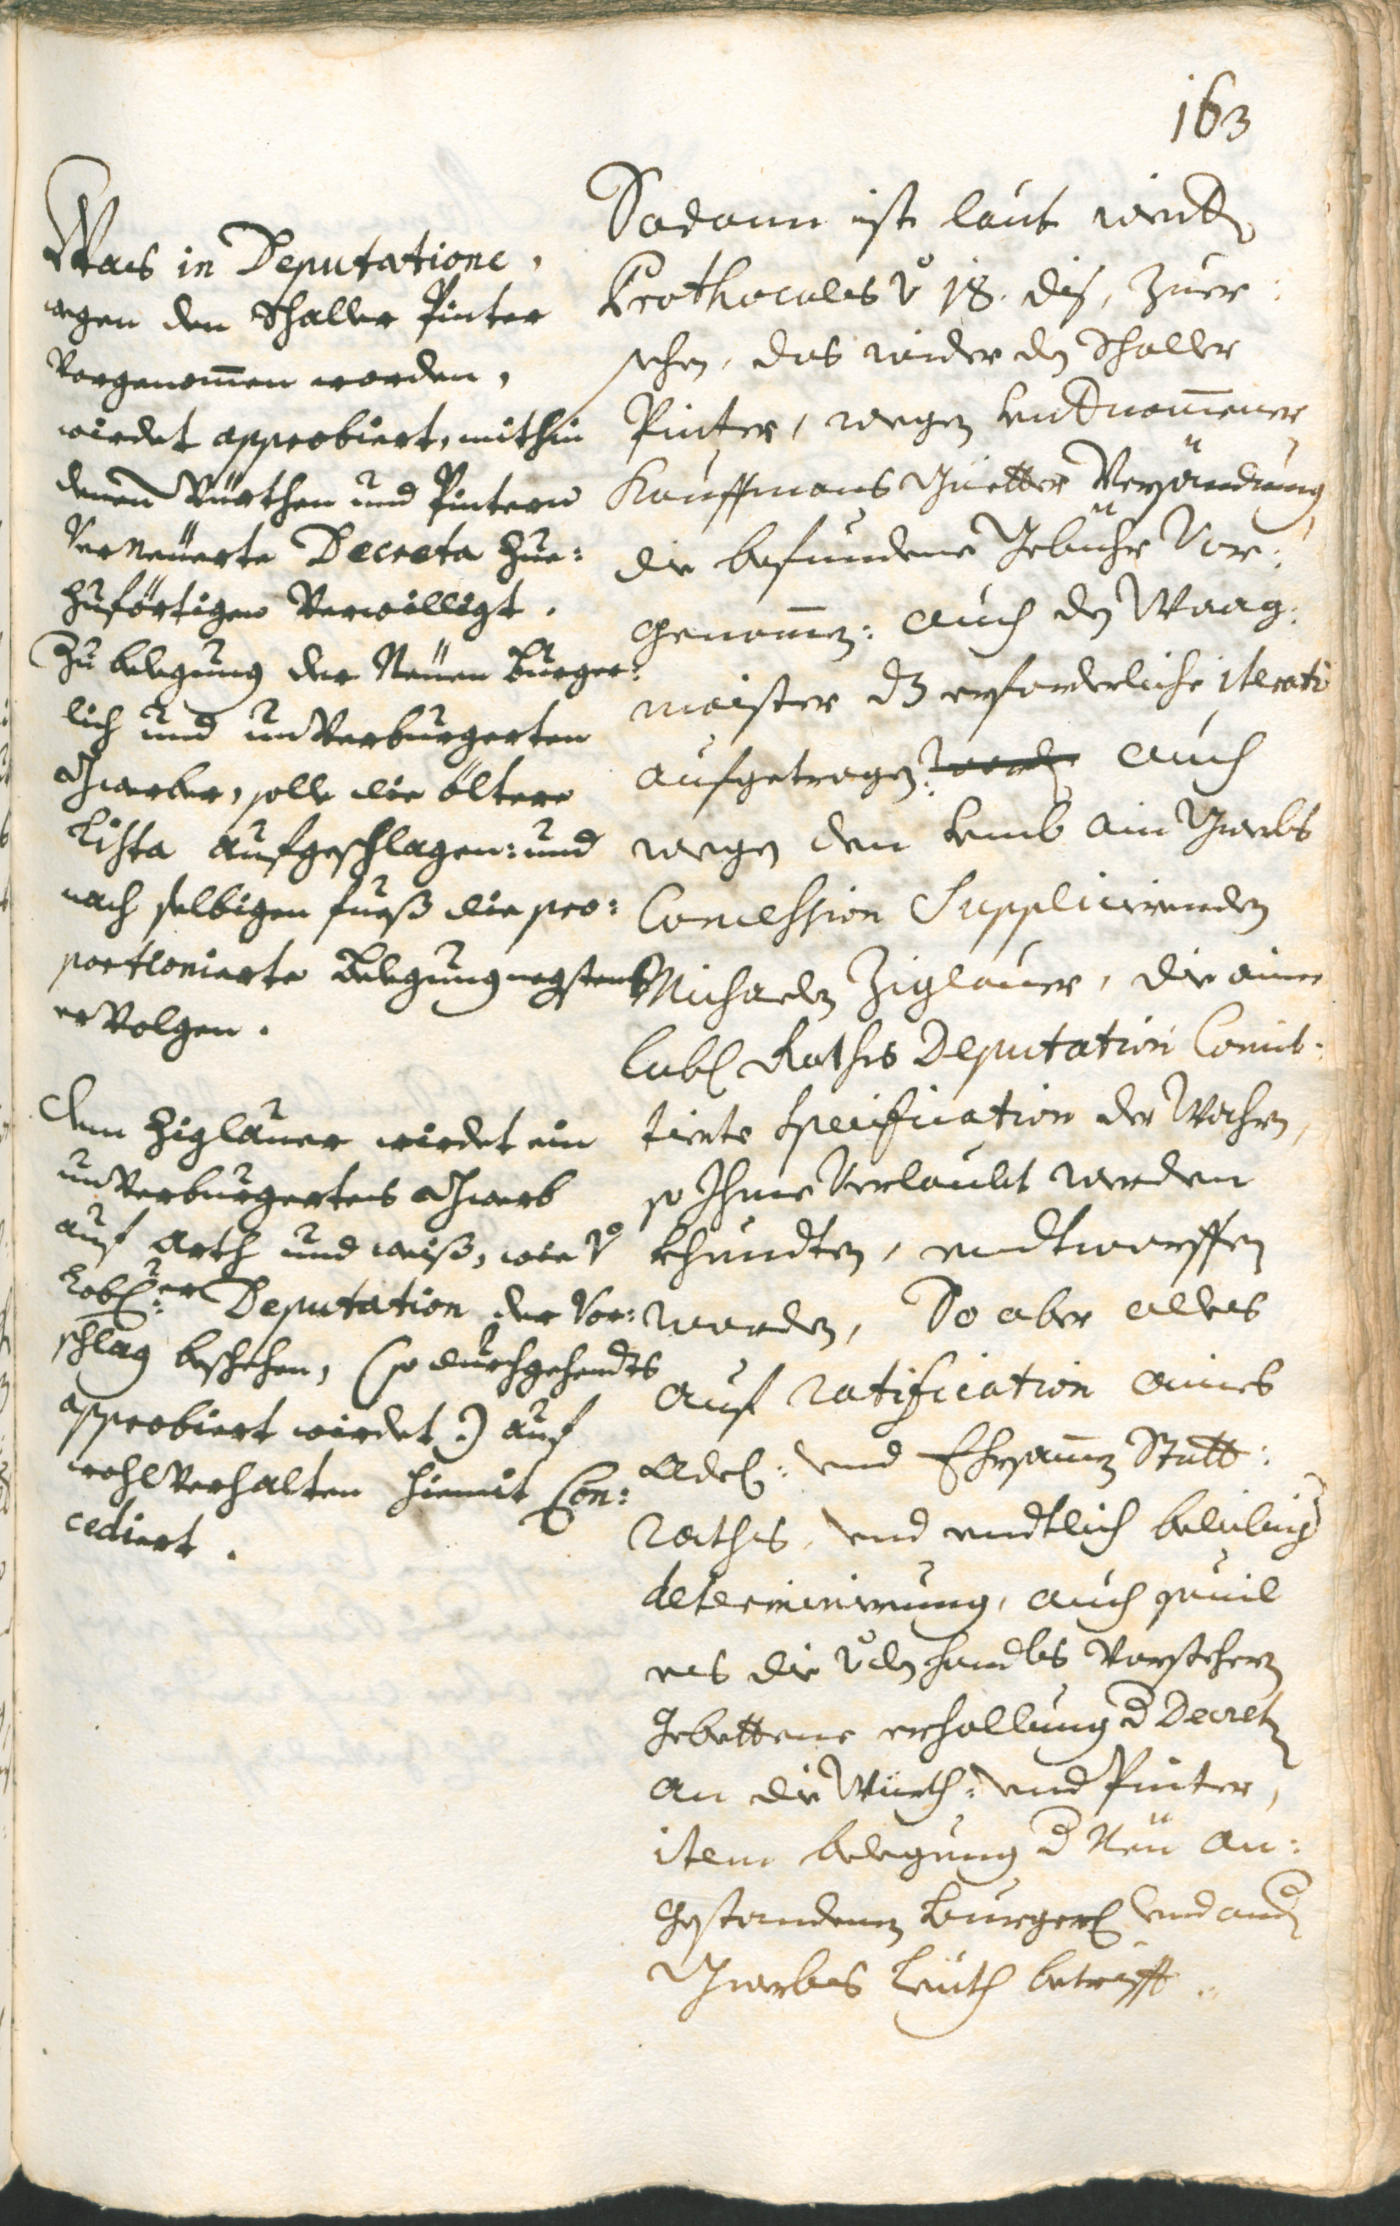 163
Was in Deputatione,
wegen den Thaller Pinter
Vorgenommen worden,
wirdet approbiert, mithin
denen Würthen und Pintern
Verneüerte Decreta hue:
zuförtigen Verwilligt.
Zu belegung der Neüen Burger:
lich und unVerburgerten
Gwerber, solle die öltere
Lista aufgeschlagen: und
nach selbigen fueß die pro:
portionierte Belegung negstens
erVolgen.
Dem Ziglauer wirdet ein
unVerburgertes Gwerb
auf arth und weiß, wie v̊
Lobl: er Deputation der Vor:
schlag beschehen, (so durchgehendts
approbiert wirdet:) auf
wohlVerhalten hiemit Con:
cediert.
Sodann ist laut
Prothocols v̊ 18. dis, zuer:
sehen, das wider dz Thaller
Pinter, wegen
Kauffmans Güetter Versändung
die befundene Gebühr Vor:
genomen: auch dz Waag:
maister dz erforderliche iterato
aufgetragen: auch
wegen den umb ain Gwerbs
Concession Supplicierenden
Michaeln Ziglauer, die ainer
Lobl Rathes Deputation Comit:
tierte Specification der Wahren,
so Ihme Verlaubt werden
khundten, endtworffen
worden, So aber alles
auf ratification aines
Adel: und Ehrsamen Statt:
Rathes, und endtlich beliebig
determinierung, auch sovil
es die v̊ den handls Vorstehern
Gebettene erhollung d Decretn
an die Würth: und Pinter,
item belegung d Neü an:
gestandenen Burgerl und and
Gwerbs Leüth betrifft.